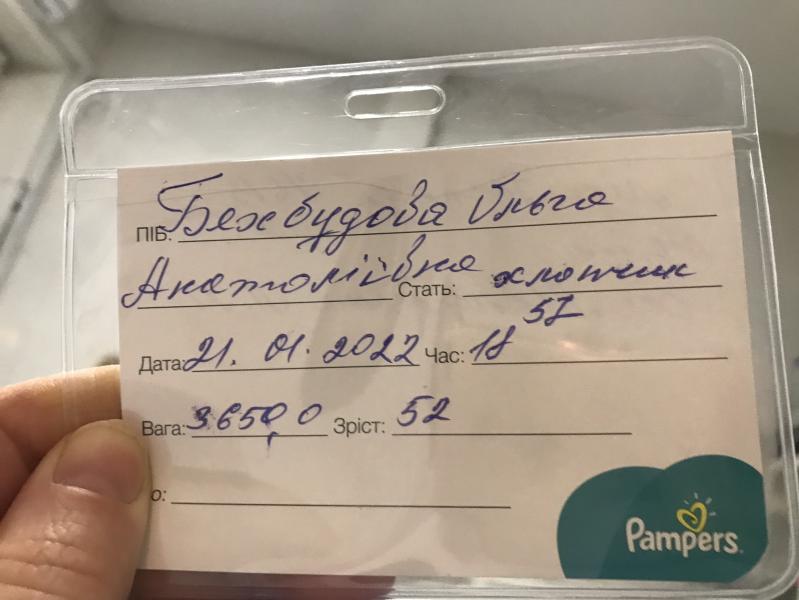 ПІБ: Бехбудова Ольга
Анатоліївна Стать: хлопчик
Дата: 21. 01. 2022 Час: 18 57
Вага: 3650,0 Зріст: 52
о:
Pampers